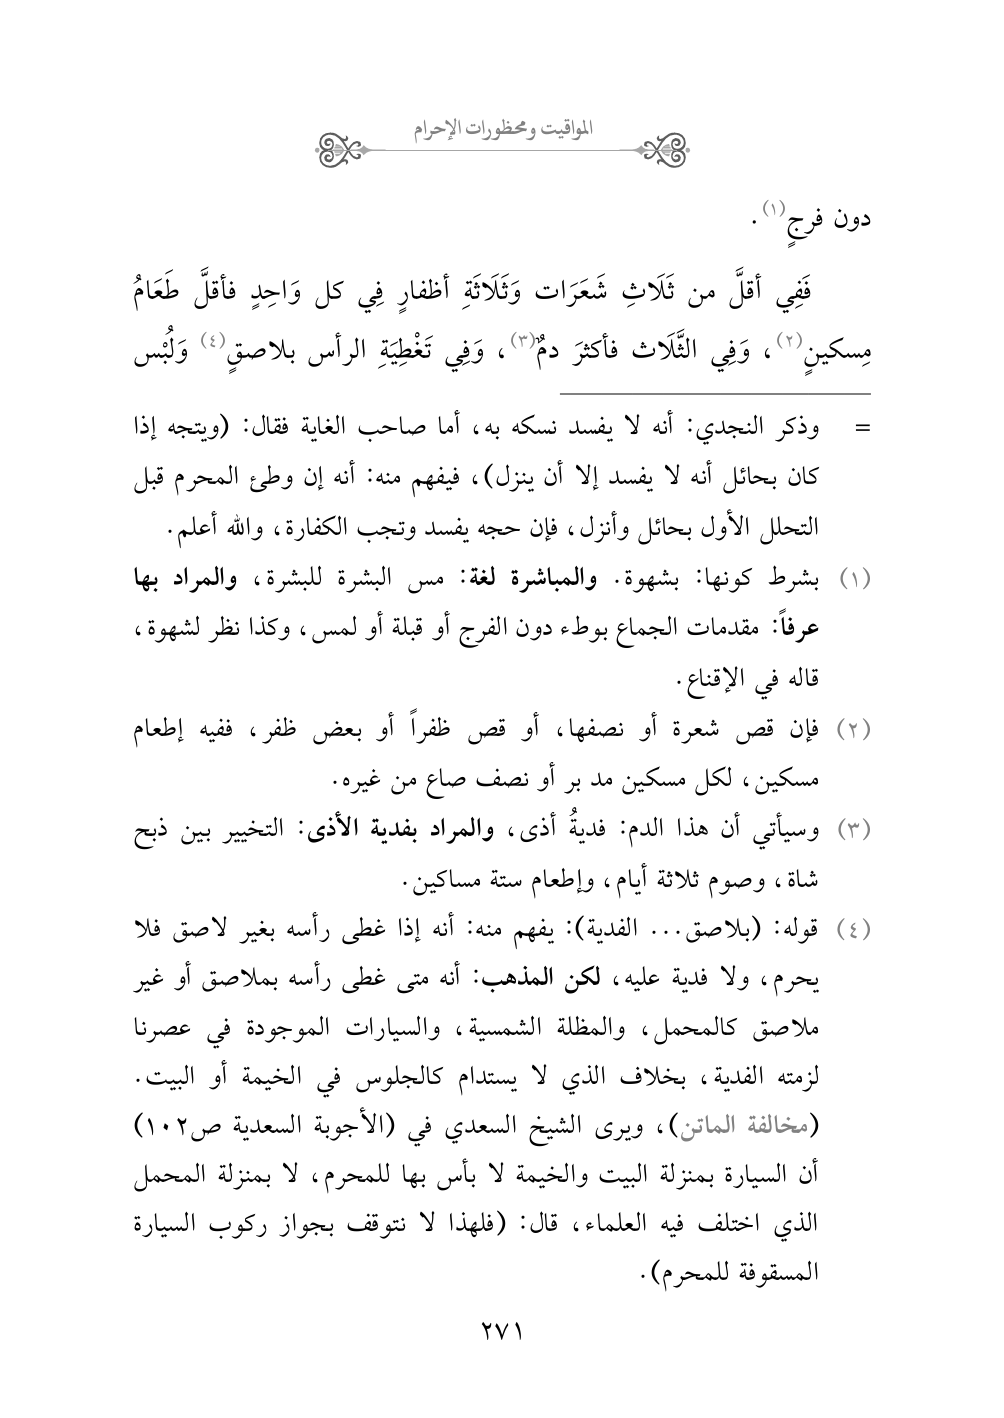 المواقيت ومحظورات الإحرام
دون فرجٍ(١).
فَفِي أقلَّ من ثَلَاثِ شَعَرَات وَثَلَاثَةِ أظفارٍ فِي كل وَاحِدٍ فأقلَّ طَعَامُ
مِسكينٍ(٢)، وَفِي الثَّلَاث فأكثرَ دمٌ(٣)، وَفِي تَغْطِيَةِ الرأس بلاصقٍ(٤) وَلُبْس
= وذكر النجدي: أنه لا يفسد نسكه به، أما صاحب الغاية فقال: (ويتجه إذا
كان بحائل أنه لا يفسد إلا أن ينزل)، فيفهم منه: أنه إن وطئ المحرم قبل
التحلل الأول بحائل وأنزل، فإن حجه يفسد وتجب الكفارة، والله أعلم.
(١) بشرط كونها: بشهوة. والمباشرة لغة: مس البشرة للبشرة، والمراد بها
عرفاً: مقدمات الجماع بوطء دون الفرج أو قبلة أو لمس، وكذا نظر لشهوة،
قاله في الإقناع.
(٢) فإن قص شعرة أو نصفها، أو قص ظفراً أو بعض ظفر، ففيه إطعام
مسكين، لكل مسكين مد بر أو نصف صاع من غيره.
(٣) وسيأتي أن هذا الدم: فديةُ أذى، والمراد بفدية الأذى: التخيير بين ذبح
شاة، وصوم ثلاثة أيام، وإطعام ستة مساكين.
(٤) قوله: (بلاصق... الفدية): يفهم منه: أنه إذا غطى رأسه بغير لاصق فلا
يحرم، ولا فدية عليه، لكن المذهب: أنه متى غطى رأسه بملاصق أو غير
ملاصق كالمحمل، والمظلة الشمسية، والسيارات الموجودة في عصرنا
لزمته الفدية، بخلاف الذي لا يستدام كالجلوس في الخيمة أو البيت.
(مخالفة الماتن)، ويرى الشيخ السعدي في (الأجوبة السعدية ص١٠٢)
أن السيارة بمنزلة البيت والخيمة لا بأس بها للمحرم، لا بمنزلة المحمل
الذي اختلف فيه العلماء، قال: (فلهذا لا نتوقف بجواز ركوب السيارة
المسقوفة للمحرم).
٢٧١